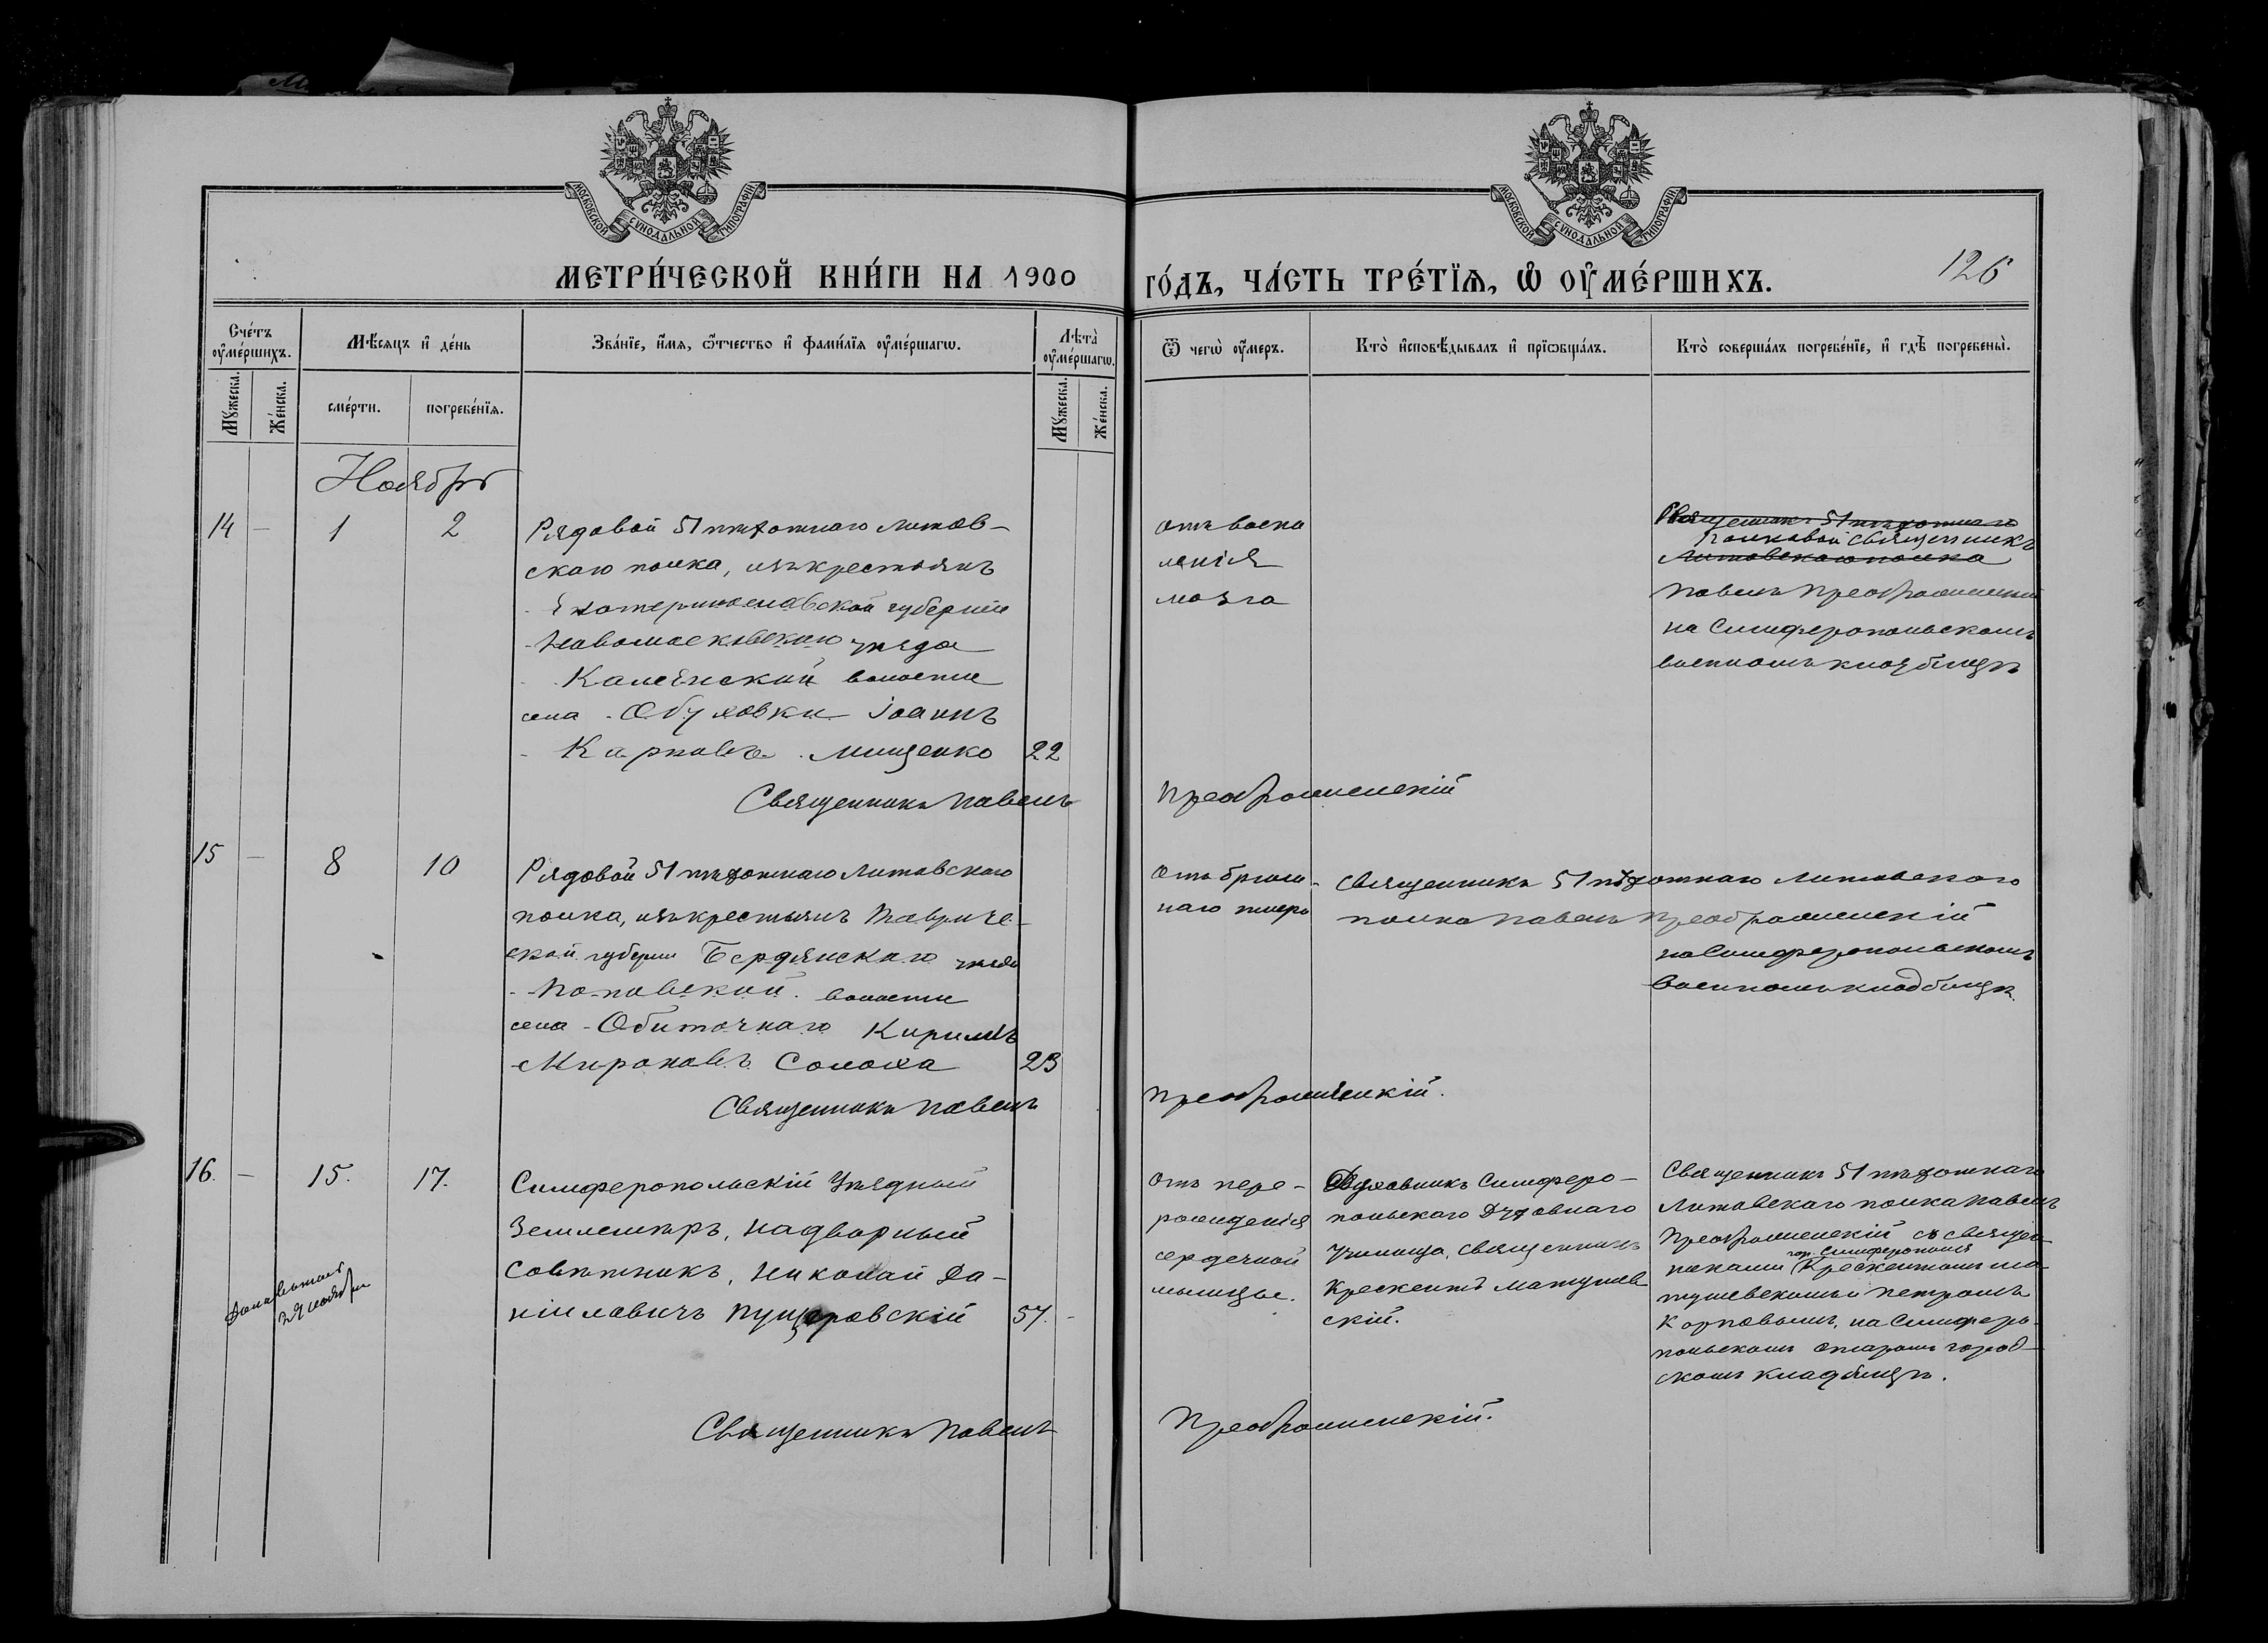 МОСКОВСКОЙ СѴНОДАЛЬНОЙ ТИПОГРАФІИ
МОСКОВСКОЙ СѴНОДАЛЬНОЙ ТИПОГРАФІИ
МЕТРИ́ЧЕСКОЙ КНИ́ГИ НА 1900
ГО́ДЪ, ЧА́СТЬ ТРЕ́ТЇѦ, Ѡ҆ ОУ҆МЕ́РШИХЪ.
126
Сче́тъ оу҆ме́ршихъ.
Мѣ́сяцъ и҆ де́нь
Зва́нїе, и҆́мѧ, ѻ҆́тчество и҆ фами́лїѧ оу҆ме́ршагѡ.
Лѣта̀ оу҆ме́ршагѡ.
Ѿ чегѡ̀ оу҆́меръ.
Кто̀ и҆сповѣ́дывалъ и҆ прїѡбща́лъ.
Кто̀ соверша́лъ погребе́нїе, и҆ гдѣ̀ погребены̀.
Мꙋ́жеска.
Же́нска.
сме́рти.
погребе́нїѧ.
Мꙋ́жеска.
Же́нска.
Ноябрь
14 — 1 2
Рядовой 51 пѣхотнаго Литов-
скаго полка, изъ крестьянъ
Екатеринославской губерніи
Новомосковскаго уѣзда
Волости
села Обуховки Іоаннъ
Карповъ Мищенко 22
отъ воспа
ленія
мозга
Священникъ 51 пѣхотнаго
Полковой священникъ
Литовскаго полка
Павелъ Преображенскій
на Симферопольскомъ
военномъ кладбищѣ
Священникъ Павелъ Преображенскій
15 — 8 10
Рядовой 51 пѣхотнаго Литовскаго
полка, изъ крестьянъ Тавриче-
ской губерніи Бердянскаго уѣзда
Поповской волости
села Обиточнаго Кириллъ
Мироновъ Солоха 23
Отъ брюш-
наго тифа
Священникъ 51 пѣхотнаго Литовскаго
полка Павелъ Преображенскій
на Симферопольскомъ
военномъ кладбищѣ.
Священникъ Павелъ Преображенскій.
16. — 15. 17.
Симферопольскій Уѣздный
Землемѣръ, надворный
Совѣтникъ, Николай Да-
ніиловичъ Пущеровскій 57. -
Отъ пере-
рожденія
сердечной
мышцы.
Духовникъ Симферо-
польскаго Духовнаго
Училища, священникъ
Крескентъ Матушев
скій.
Священникъ 51 пѣхотнаго
Литовскаго полка Павелъ
Преображенскій съ священ-
гор. Симферополя
никами Крескентомъ Ма-
тушевскимъ и Петромъ
Карповымъ, на Симферо-
польскомъ старомъ город-
скомъ кладбищѣ.
ноября
Священникъ Павелъ Преображенскій.